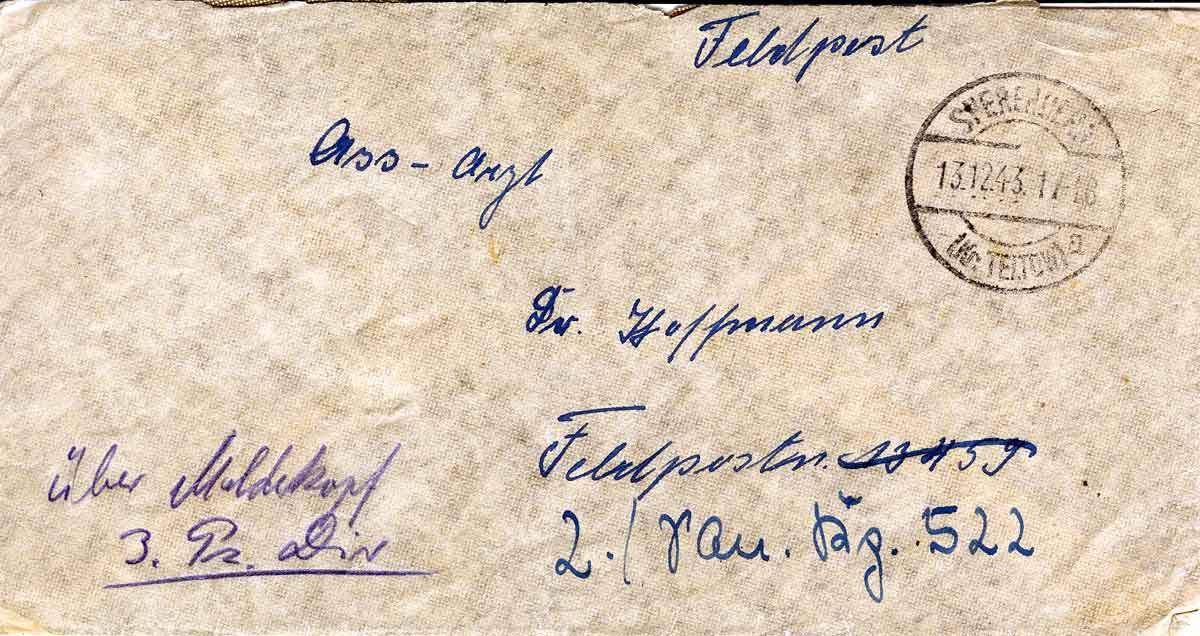 Feldpost
SPERENBERG
13.12.43. 17-18
(Kr. TELTOW) a
Ass-Arzt
Dr. Hoffmann
Feldpostn.
2./ San. Kp. 522
über Meldekopf
3. Pz. Div